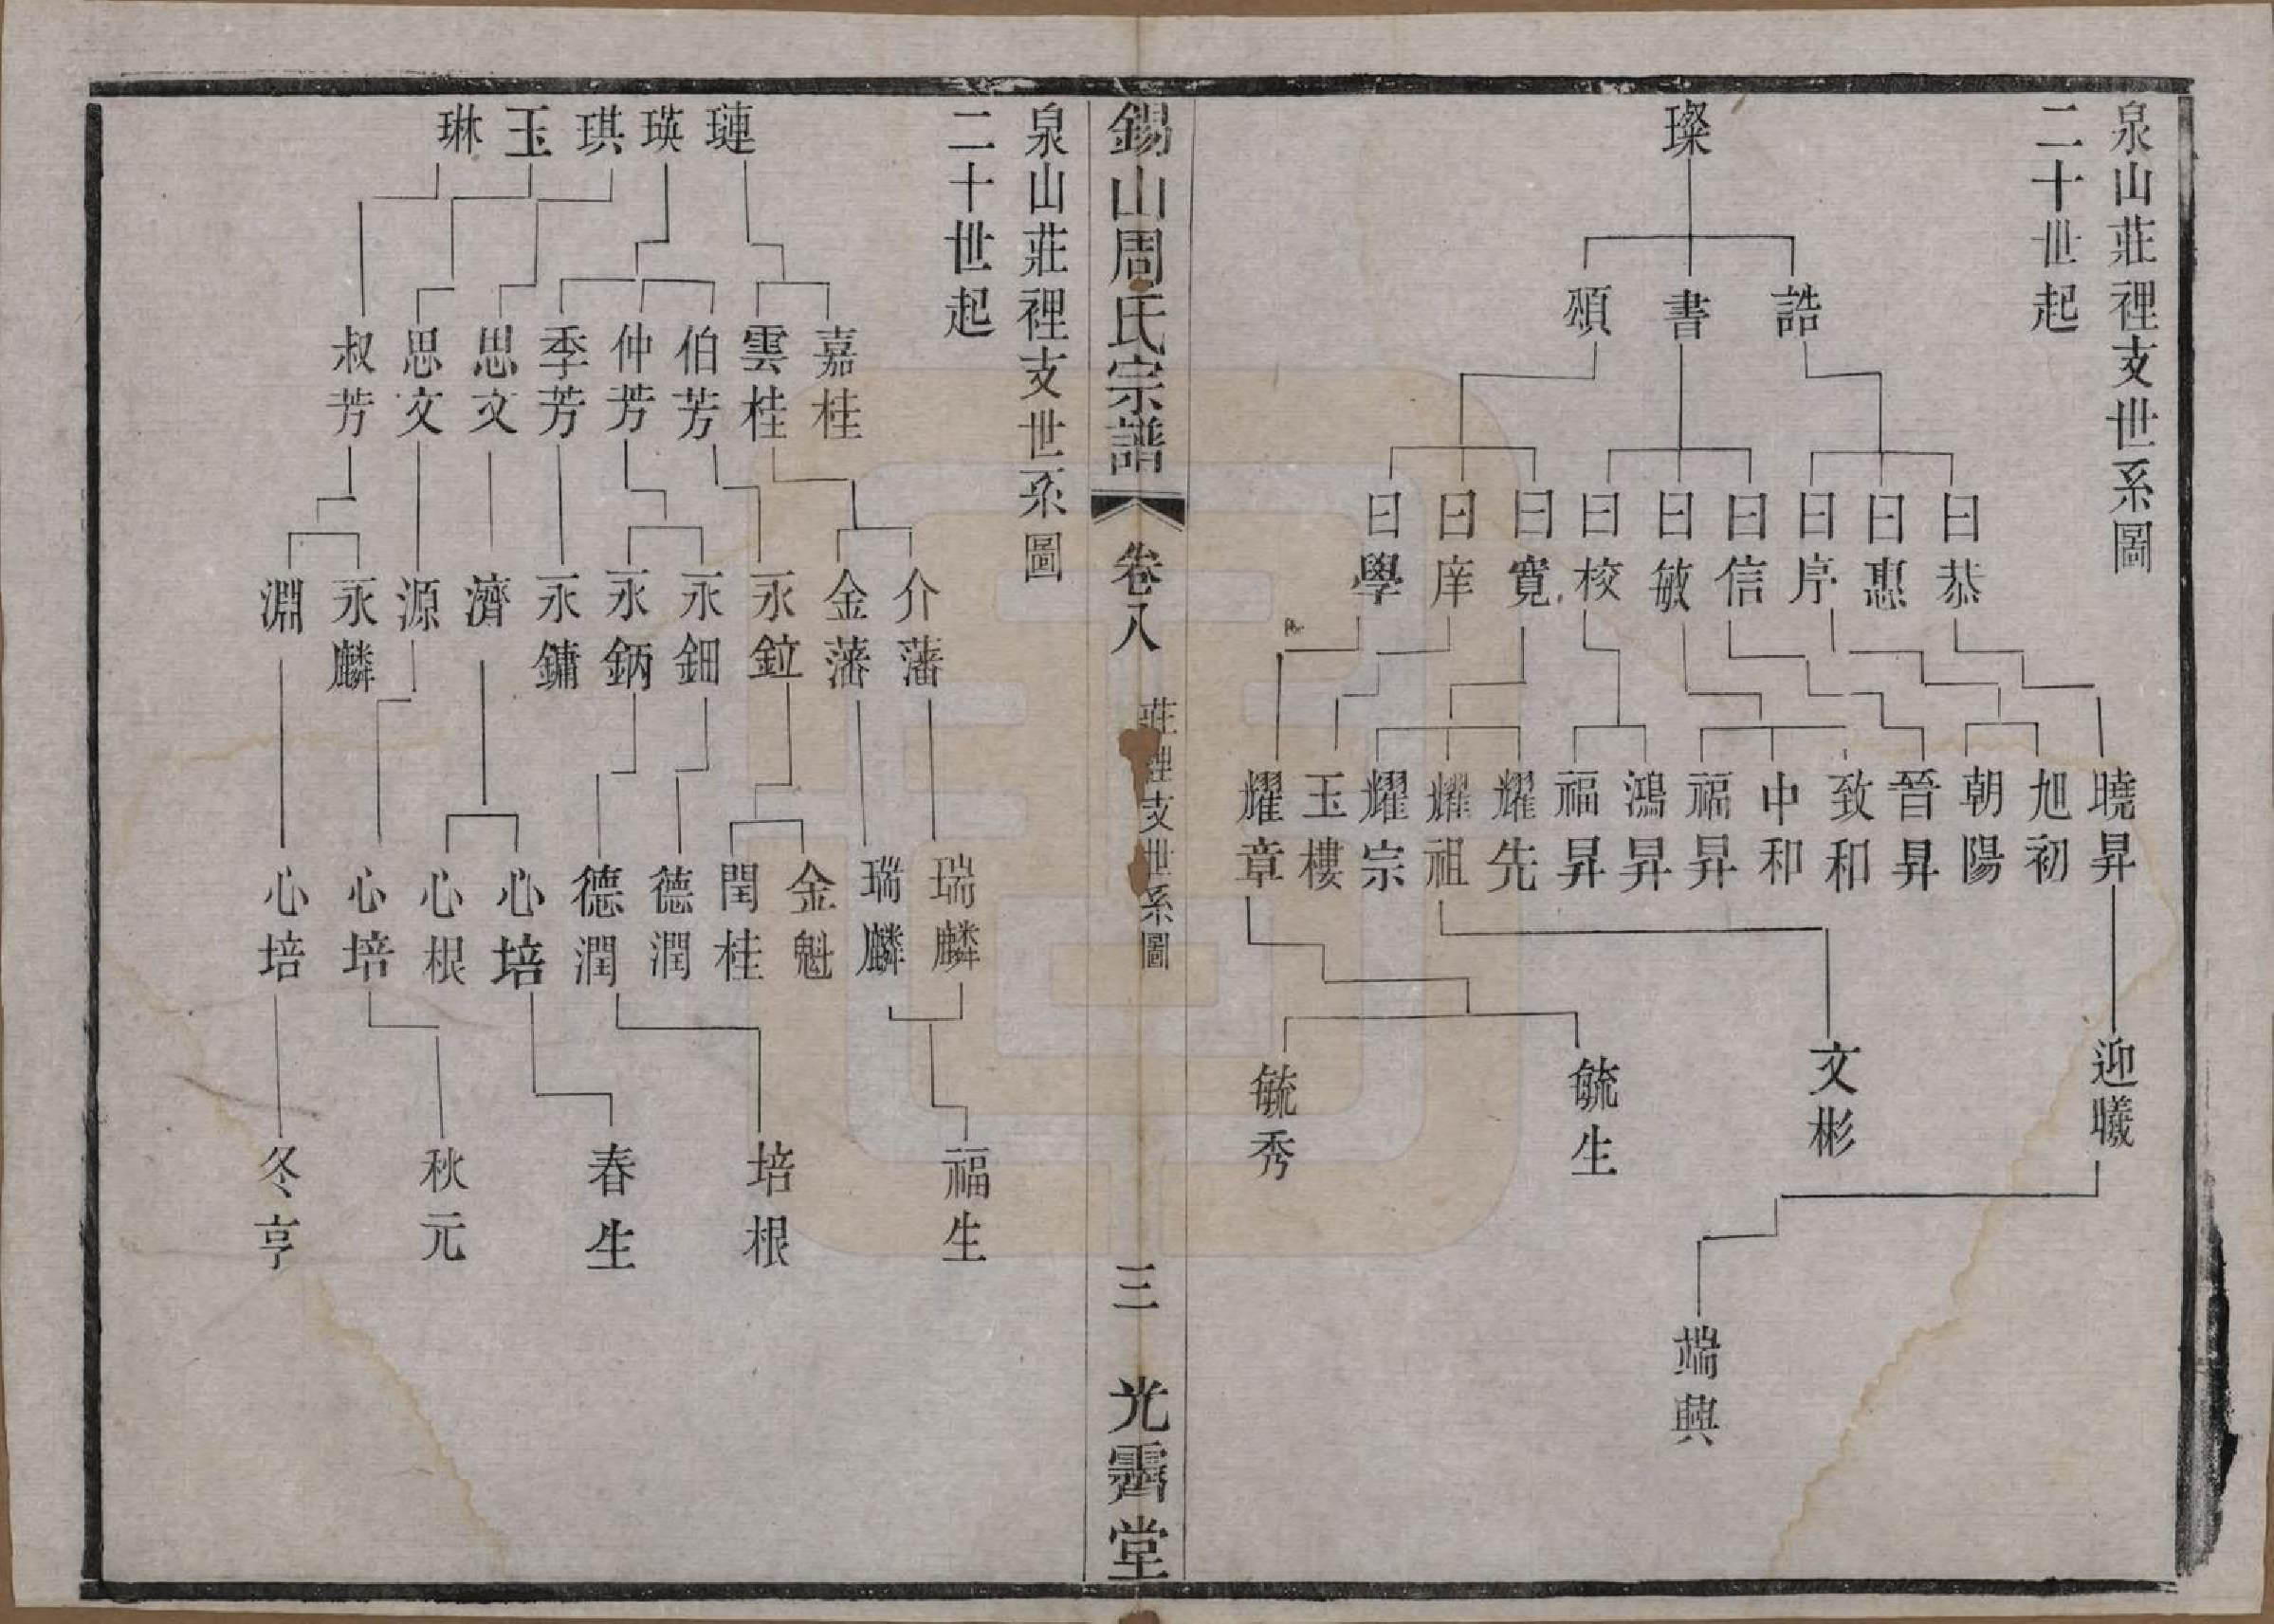 泉山莊裡支世系圖
二十世起
璨
誥 書 頌
曰恭 曰惠 曰序 曰信 曰敏 曰校 曰寬 曰庠 曰學
曉昇 旭初 朝陽 晉昇 致和 中和 福昇 鴻昇 福昇 耀先 耀祖 耀宗 玉樓 耀章
迎曦 文彬 毓生 毓秀
端興
錫山周氏宗譜
卷八
莊裡支世系圖
三
光霽堂
泉山莊裡支世系圖
二十世起
璉 瑛 琪 玉 琳
嘉桂 雲桂 伯芳 仲芳 季芳 思文 思文 叔芳
介藩 金藩 永鉝 永鈿 永鈵 永鏞 濟 源 永麟 淵
瑞麟 瑞麟 金魁 閏桂 德潤 德潤 心培 心根 心培 心培
福生 培根 春生 秋元 冬亨